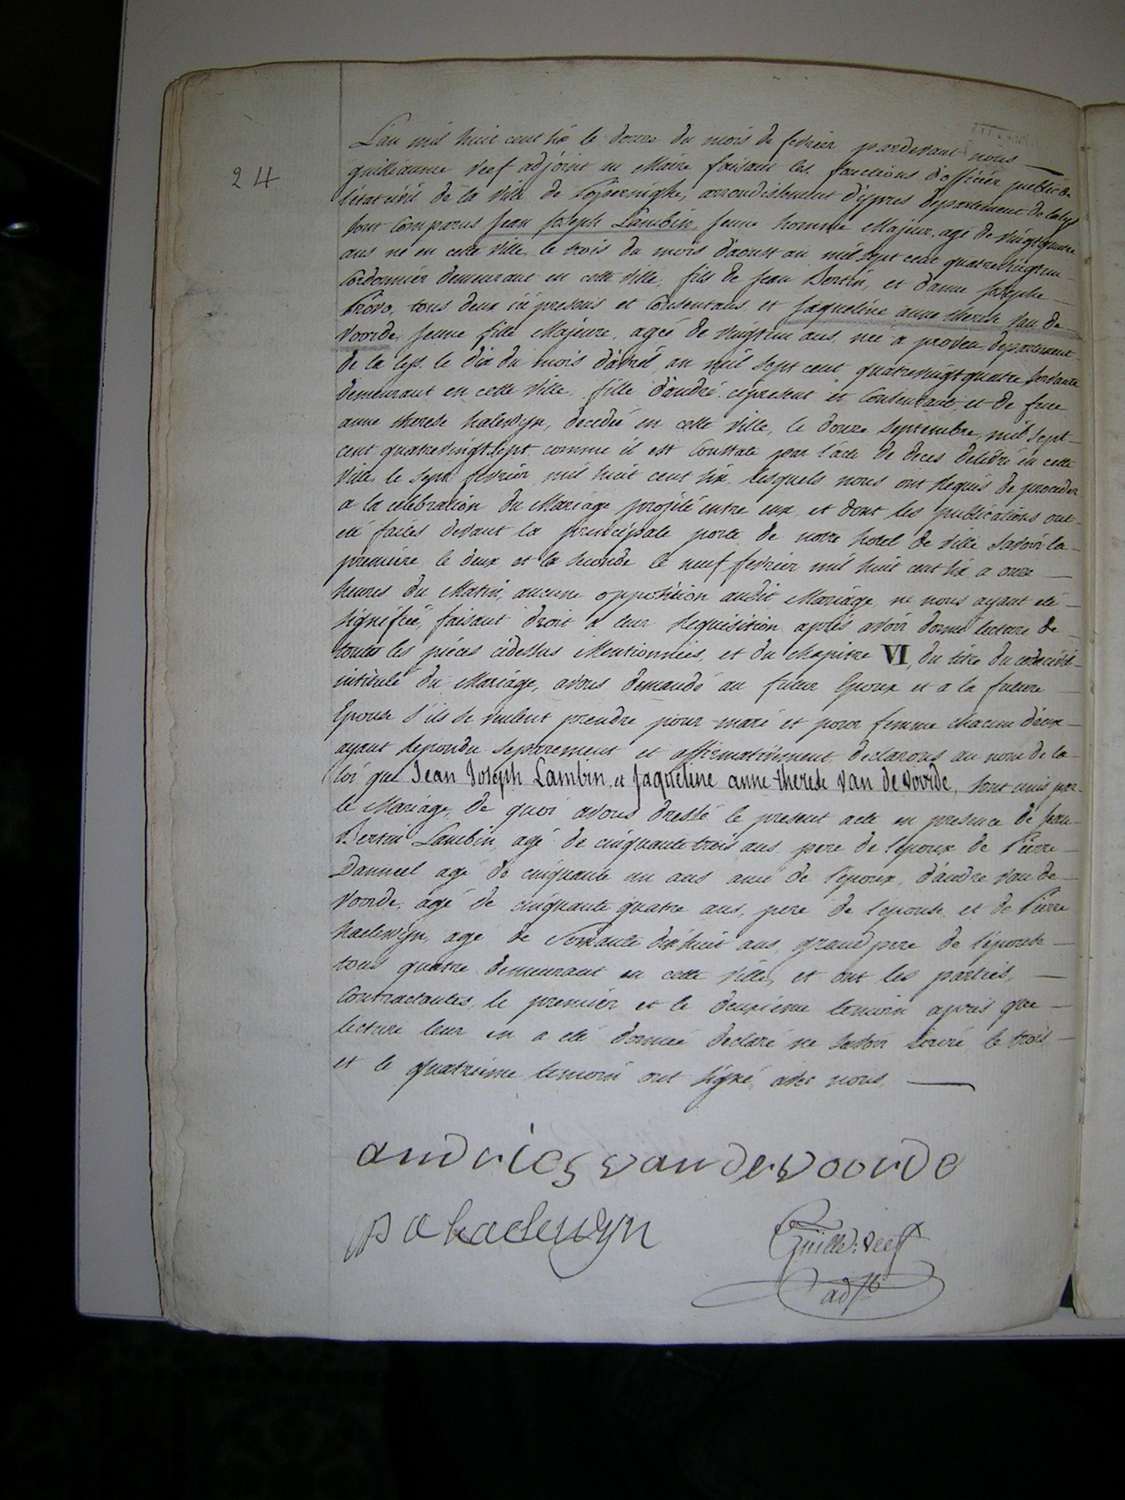 24
L'an mil huit cent six le douze du mois de fevrier pardevant nous
guilliaume veef adjoint au Maire faisant les fonctions d'officier public de
l'état civil de la Ville de Poperinghe, arrondissement d'ypres departement de la lys
sont comparus Jean Joseph Lambin, jeune homme Majeur, agé de vingt quatre
ans né en cette ville, le trois du mois d'aoust an mil sept cent quatrevingt un
Cordonnier demeurant en cette ville, fils de Jean Bertin, et d'anne Josephe
Provo, tous deux ici presens et consentans et Jaqueline anne therese van de
Voorde, jeune fille Majeure, agée de vingt un ans, née a proven departement
de la lys le dix du mois d'avril an mil sept cent quatrevingt quatre
demeurant en cette ville, fille d'andré ci present et consentant et de feue
anne therese halewyn, decedée en cette Ville, le douze Septembre mil sept
cent quatrevingt sept comme il est constaté par l'acte de deces delivré en cette
Ville le sept fevrier mil huit cent six lesquels nous ont requis de proceder
a la celebration du Mariage projété entre eux et dont les publications ont
été faites devant la principale porte de notre hotel de ville savoir la
premiere le deux et la seconde le neuf fevrier mil huit cent six a onze
heures du Matin, aucune opposition audit Mariage ne nous ayant été
signifiée, faisant droit a leur requisition après avoir donné lecture de
toutes les piéces cidessus Mentionnées, et du chapitre VI, du titre du code civil
intitulé du Mariage, avons demandé au futur Epoux et a la future
Epouse s'ils se veulent prendre pour mari et pour femme chacun d'eux
ayant repondu separement et affirmativement declarons au nom de la
loi que Jean Joseph Lambin, et Jaqueline anne therese van de voorde, sont unis par
le Mariage, de quoi avons dressé le present acte en presence de jean
Bertin Lambin agé de cinquante trois ans pere de l'epoux de Pierre
Danneel agé de cinquante un ans ami de l'epoux, d'andre van de
Voorde, agé de cinquante quatre ans, pere de l'epouse et de Pierre
haelewyn, agé de Soixante dixhuit ans, grand pere de l'épouse
tous quatre demeurant en cette Ville, et ont les parties,
Contractantes, le premier et le deuxieme temoin après que
lecture leur en a été donnée declaré ne savoir ecrire le trois
et le quatrieme temoin ont signé avec nous
andries vandevoorde
p a haelewyn
Guille: Veef
adjt